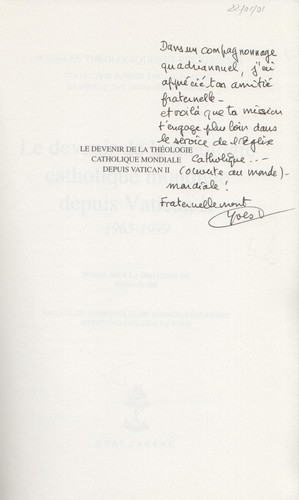 22/01/01
Dans un compagnonnage
quadriannuel, j'ai
apprécié ton amitié
fraternelle -
et voilà que ta mission
t'engage plus loin dans
le service de l'Eglise
LE DEVENIR DE LA THÉOLOGIE
CATHOLIQUE MONDIALE Catholique...-
DEPUIS VATICAN II (ouverte au monde)-
mondiale !
Fraternellement
Yves
Le deven
catholique
depuis Vat
1965-1999